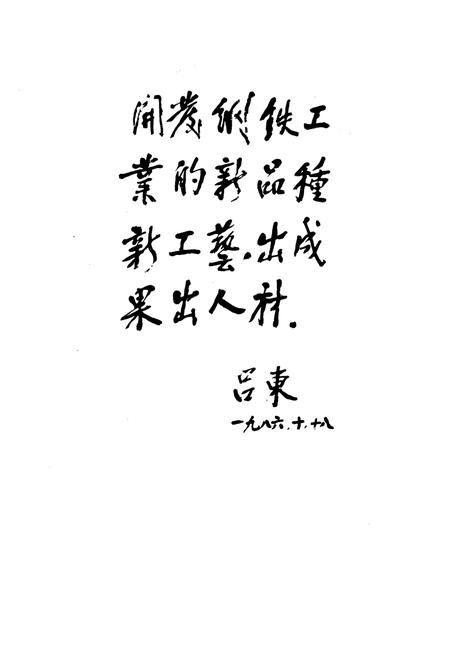 開發鋼鉄工
業的新品種
新工藝.出成
果出人材.
吕東
一九八六.十.十八